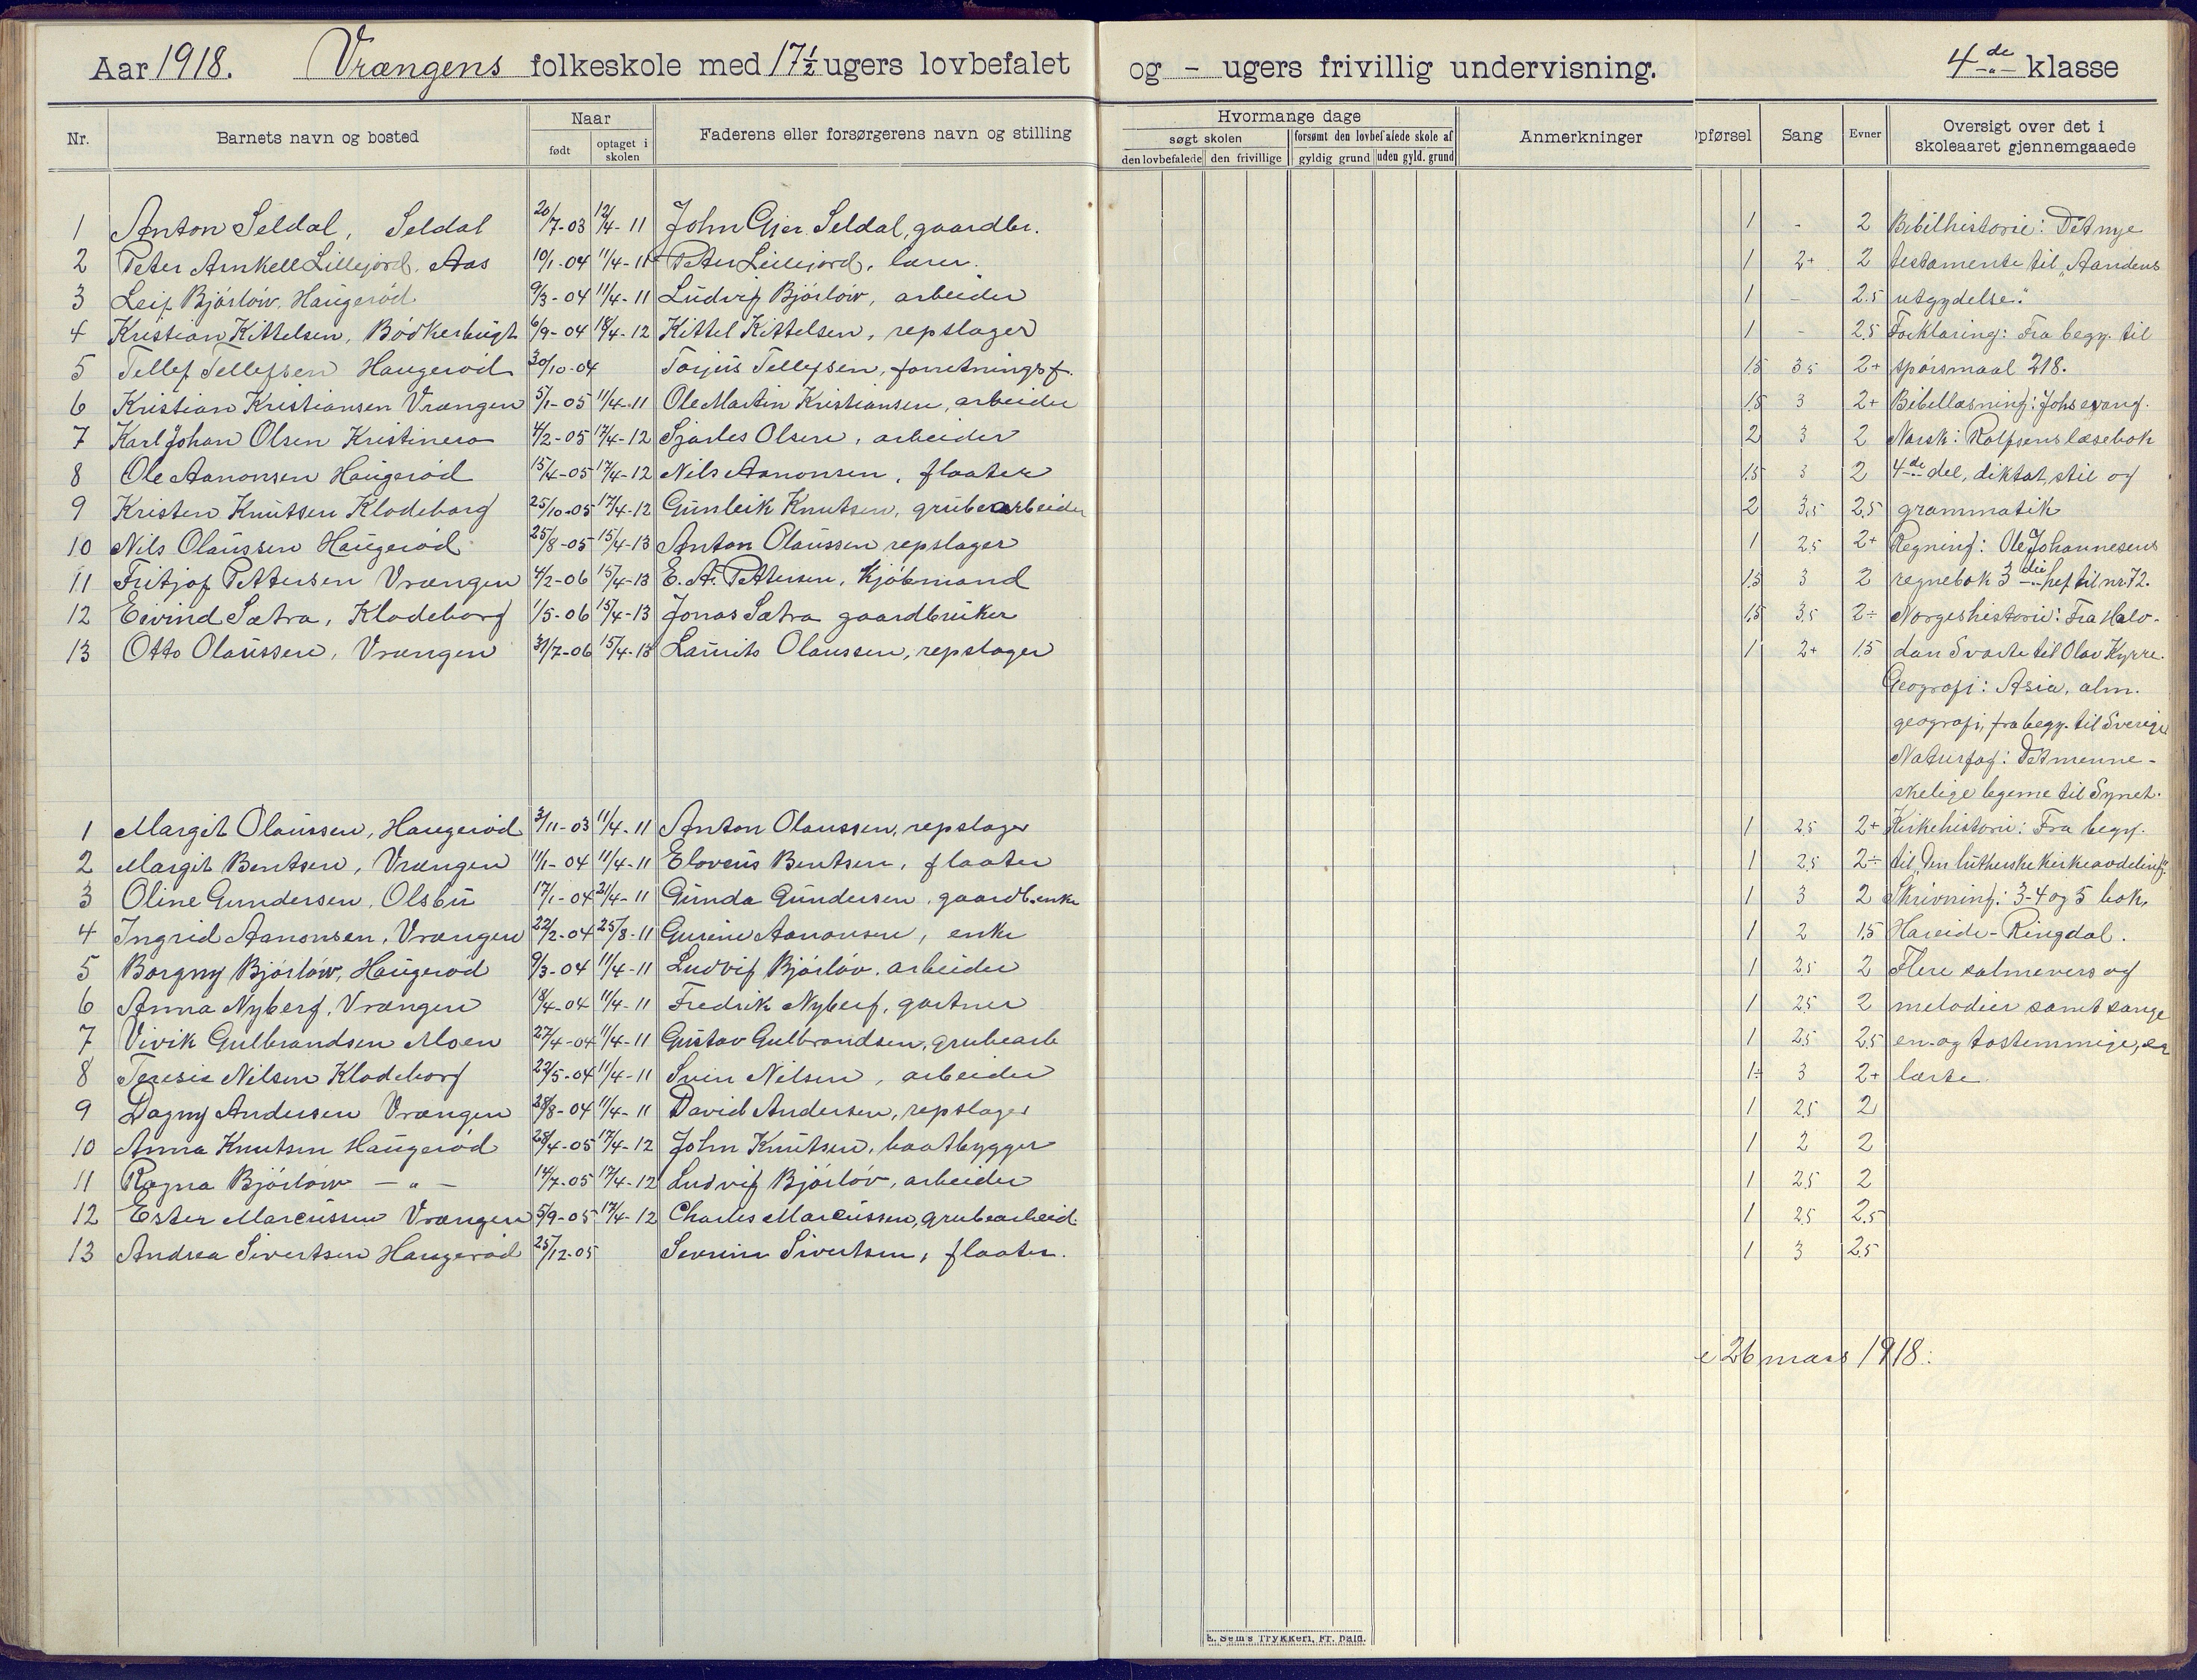 Aar 1918. Vrængens folkeskole med 17½ ugers lovbefalet og - ugers frivillig undervisning. 4de klasse
Nr. Barnets navn og bosted Naar Faderens eller forsørgerens navn og stilling Hvormange dage Anmerkninger Opførsel Sang Evner Oversigt over det i skoleaaret gjennemgaaede
født optaget i skolen søgt skolen forsømt den lovbefalede skole af
den lovbefalede den frivillige gyldig grund uden gyld. grund
1 Anton Seldal, Seldal 20/7-03 12/4-11 John Gjer. Seldal, gaardbr. 1 - 2 Bibelhistorie: Det nye
2 Peter Arnkell Lillejord, Aas 10/1-04 11/4-11 Peter Lillejord, lærer. 1 2+ 2 testamente til „Aandens
3 Leif Bjórlów, Haugeród 9/3-04 11/4-11 Ludvig Bjórlów, arbeider 1 - 2.5 utgydelse."
4 Kristian Kittelsen, Bódkerbugt 6/9-04 18/4-12 Kittel Kittelsen, repslager 1 - 2.5 Forklaring: Fra begy. til
5 Tellef Tellefsen Haugeród 30/10-04 Torjus Tellefsen, forretningsf. 1.5 3.5 2+ spórsmaal 218.
6 Kristian Kristiansen Vrængen 5/1-05 11/4-11 Ole Martin Kristiansen, arbeider 1.5 3 2+ Bibellæsning: Johs evang.
7 Karl Johan Olsen Kristinero 4/2-05 17/4-12 Sjarles Olsen, arbeider 2 3 2 Norsk: Rolfsens læsebok
8 Ole Aanonsen Haugeród 15/4-05 17/4-12 Nils Aanonsen, flaater 1.5 3 2 4de del, diktat, stil og
9 Kristen Knutsen Klodeborg 25/10-05 17/4-12 Gunleik Knutsen, grubearbeider 2 3.5 2.5 grammatik
10 Nils Olaussen Haugeród 25/8-05 15/4-13 Anton Olaussen repslager 1 2.5 2+ Regning: Ole Johannesens
11 Fritjof Pettersen Vrængen 4/2-06 15/4-13 E. A. Pettersen, kjóbmand 1.5 3 2 regnebok 3die hef til nr 72.
12 Eivind Sætra, Klodeborg 1/5-06 15/4-13 Jonas Sætra gaardbruker 1.5 3.5 2÷ Norgeshistorie: Fra Halv-
13 Otto Olaussen, Vrængen 31/7-06 15/4-13 Laurits Olaussen, repslager 1 2+ 1.5 dan Svarte til Olav Kyrre.
Geografi: Asia, alm.
geografi, fra begy. til Sverige
Naturfag: Det menne-
skelige legeme til Synet.
1 Margit Olaussen, Haugeród 3/11-03 11/4-11 Anton Olaussen, repslager 1 2.5 2+ Kirkehistorie: Fra begy.
2 Margit Bentsen, Vrængen 11/1-04 11/4-11 Elovius Bentsen, flaater 1 2.5 2÷ til „Den lutherske kirkeavdeling".
3 Oline Gundersen, Olsbu 17/1-04 21/4-11 Gunda Gundersen, gaardb.enke 1 3 2 Skrivning: 3-4 og 5 bok,
4 Ingrid Aanonsen, Vrængen 22/2-04 25/8-11 Gurine Aanonsen, enke 1 2 1.5 Hareide-Ringdal.
5 Borgny Bjórlów, Haugeród 9/3-04 11/4-11 Ludvig Bjórlóv, arbeider 1 2.5 2 Flere salmevers og
6 Anna Nyberg, Vrængen 18/4-04 11/4-11 Fredrik Nyberg, gartner 1 2.5 2 melodier samt sange
7 Vivik Gulbrandsen Moen 27/4-04 11/4-11 Gustav Gulbrandsen, grubearb 1 2.5 2.5 en- og tostemmige, er
8 Teresie Nilsen Klodeborg 22/5-04 11/4-11 Svein Nilsen, arbeider 1÷ 3 2+ lærte.
9 Dagny Andersen Vrængen 28/8-04 11/4-11 David Andersen, repslager 1 2.5 2
10 Anna Knutsen Haugeród 28/4-05 17/4-12 John Knutsen, baatbygger 1 2 2
11 Ragna Bjórlów - „ - 14/7-05 17/4-12 Ludvig Bjórlóv, arbeider 1 2.5 2
12 Ester Marcussen Vrængen 5/9-05 17/4-12 Charles Marcussen, grubearbeid. 1 2.5 2.5
13 Andrea Sivertsen Haugeród 25/12-05 Severin Sivertsen, flaater. 1 3 2.5
26 mars 1918.
E. Sem's Trykkeri, Fr. hald.